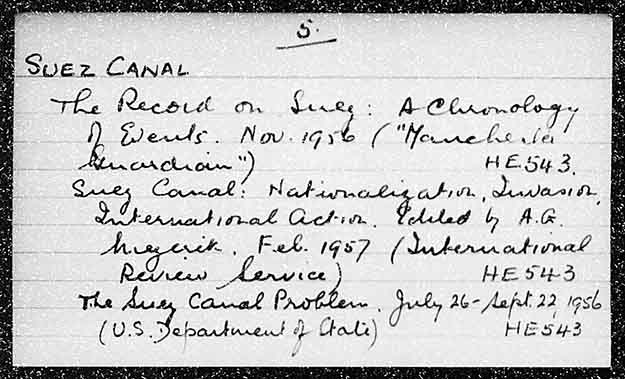 5.
SUEZ CANAL
The Record on Suez: A Chronology
of Events. Nov. 1956 ("Manchester
Guardian") HE543.
Suez Canal: Nationalization, Invasion,
International Action. Edited by A.G.
Mezerik. Feb. 1957 (International
Review Service) HE543
The Suez Canal Problem. July 26-Sept. 22, 1956
(U.S. Department of State) HE543